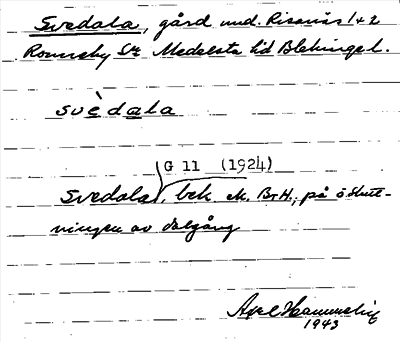 Svedala, gård und. Risanäs 1+2
Ronneby Sn Medelsta hd Blekinge l.
svèdala
G 11 (1924)
Svedala, bek. M. BrH., på östlutt-
ningen av dalgång
Axel Hammelin
1943